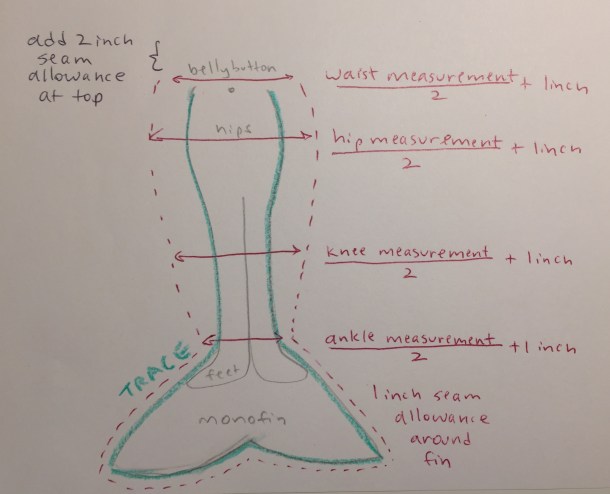 add 2 inch
seam
allowance
at top
bellybutton
waist measurement + 1 inch
2
hips
hip measurement + 1 inch
2
knee measurement + 1 inch
2
ankle measurement + 1 inch
2
TRACE
feet
monofin
1 inch seam
allowance
around
fin